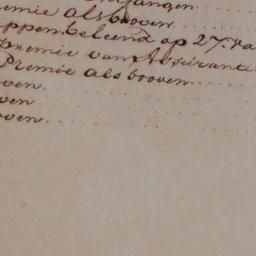 ontfangen
emie als booven
ppen beleend op 27. va
Premie van Assurantie
Premie als booven
oven
ven
oven